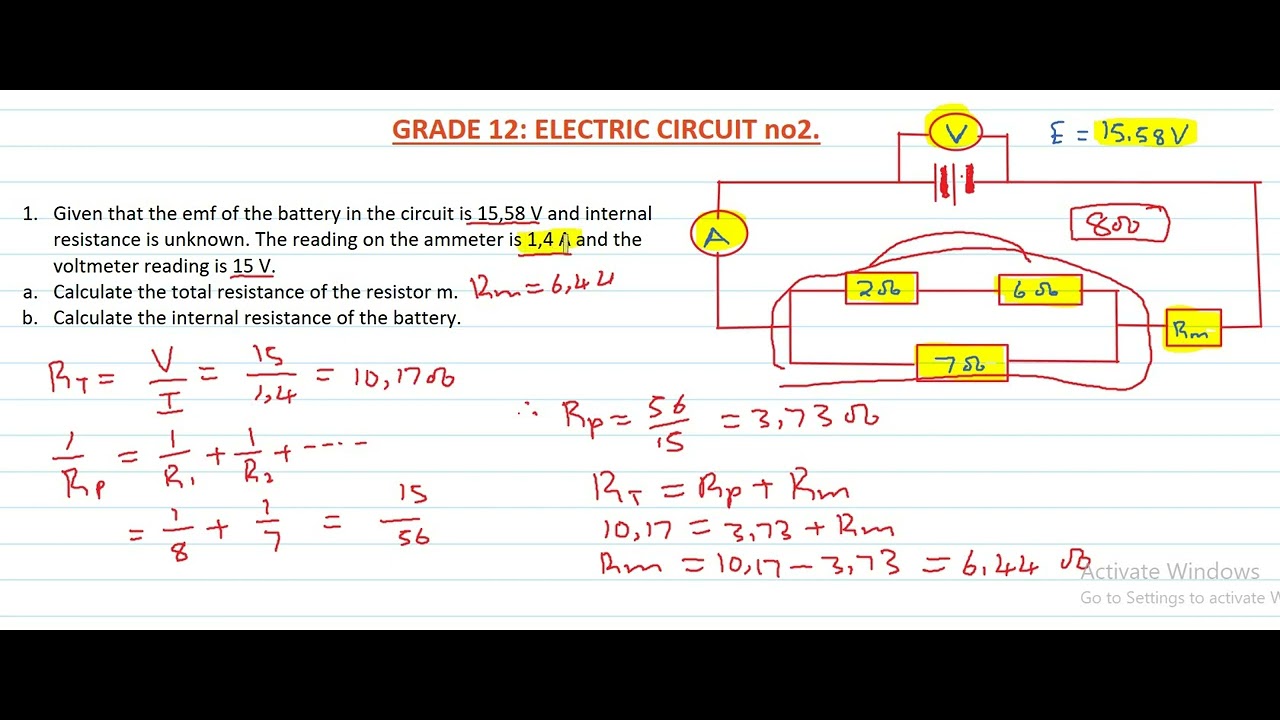 GRADE 12: ELECTRIC CIRCUIT no2.
V
E = 15.58V
1. Given that the emf of the battery in the circuit is 15,58 V and internal
resistance is unknown. The reading on the ammeter is 1,4 A and the
voltmeter reading is 15 V.
a. Calculate the total resistance of the resistor m. Rm = 6,44
b. Calculate the internal resistance of the battery.
A
8Ω
2Ω
6Ω
Rm
7Ω
RT = V/I = 15/1,4 = 10,17Ω
1/Rp = 1/R1 + 1/R2 + ----
= 1/8 + 1/7 = 15/56
∴ Rp = 56/15 = 3,73Ω
RT = Rp + Rm
10,17 = 3,73 + Rm
Rm = 10,17 - 3,73 = 6,44 Ω
Activate Windows
Go to Settings to activate W